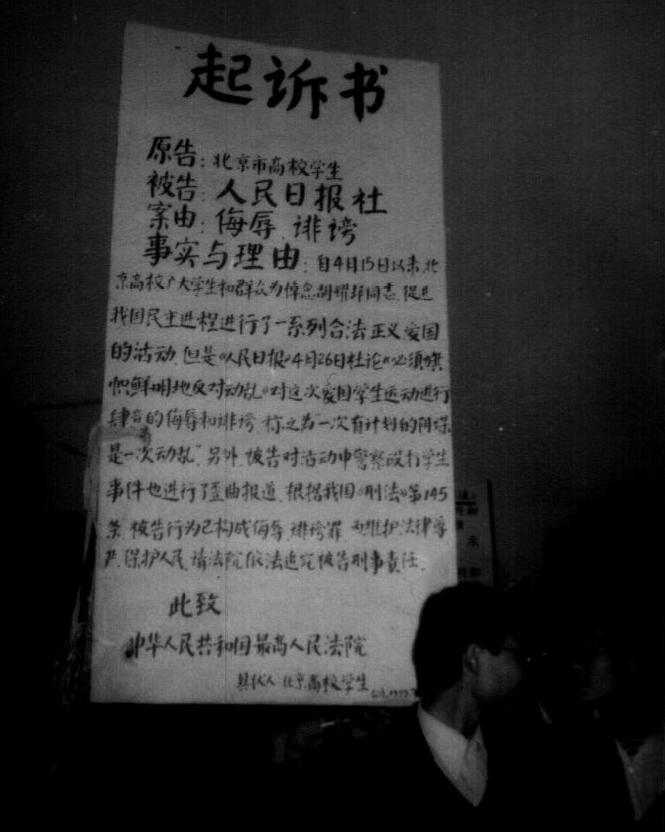 起诉书
原告：北京市高校学生
被告：人民日报社
案由：侮辱、诽谤
事实与理由：自4月15日以来,北
京高校广大学生和群众为悼念胡耀邦同志,促进
我国民主进程进行了一系列合法正义爱国
的活动,但是《人民日报》4月26日社论《必须旗
帜鲜明地反对动乱》对这次爱国学生运动进行
肆意的侮辱和诽谤,称之为"一次有计划的阴谋
是一次动乱"。另外,被告对活动中警察殴打学生
事件也进行了歪曲报道,根据我国《刑法》第145
条,被告行为已构成侮辱、诽谤罪,为维护法律尊
严,保护人民,请法院依法追究被告刑事责任。
此致
中华人民共和国最高人民法院
具状人 北京高校学生